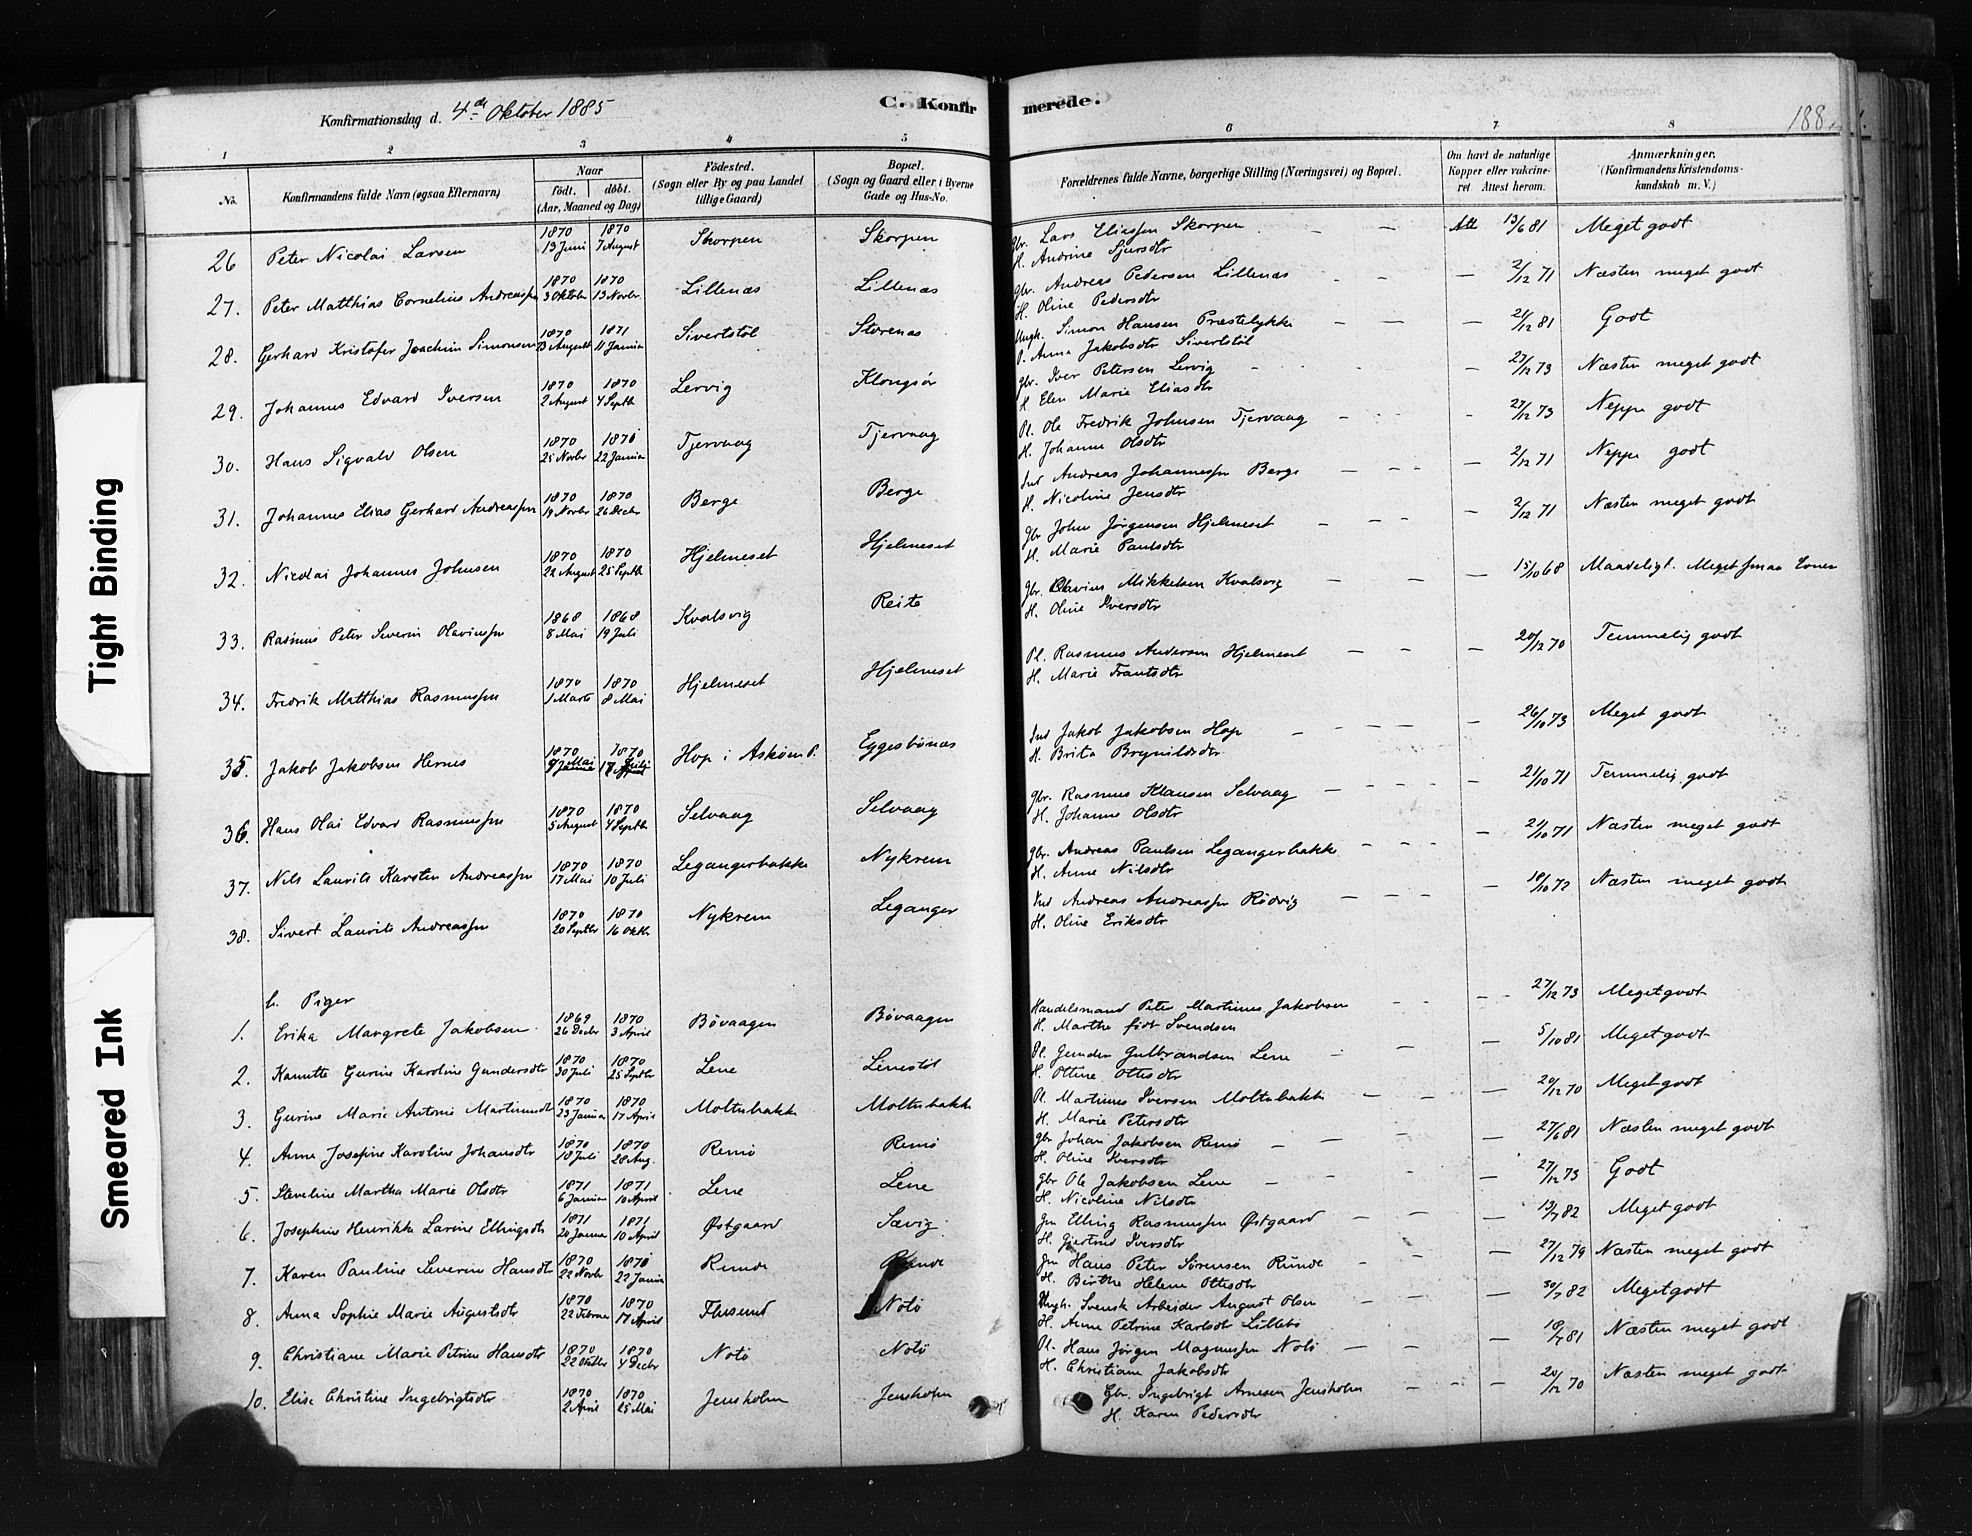 Tight Binding
Smeared Ink
188
Konfirmationsdag d. 4de Oktober 1885
C. Konfirmerede.
1 2 3 4 5 6 7 8
No. Konfirmandens fulde Navn (ogsaa Efternavn) Naar født. døbt. (Aar, Maaned og Dag) Fødested. (Sogn eller By og paa Landet tillige Gaard) Bopæl. (Sogn og Gaard eller i Byerne Gade og Hus-No. Forældrenes fulde Navne, borgerlige Stilling (Næringsvei) og Bopæl. Om havt de naturlige Kopper eller vakcineret Attest herom. Anmærkninger. (Konfirmandens Kristendomskundskab m. V.)
26 Peter Nicolai Larsen 1870 13 Juni 1870 7 August Skorpen Skorpen Gbr. Lars Eliassen Skorpen H. Andrine Sjursdtr Att 13/6 81 Meget godt
27. Peter Matthias Cornelius Andreassen 1870 3 Oktober 1870 13 Novbr Lillenæs Lillenæs Gbr. Andreas Pedersen Lillenæs H. Oline Pedersdtr — 2/12 71 Næsten meget godt
28. Gerhard Kristofer Joachim Simonsen 1870 13 August 1871 11 Januar Sivertstøl Storenæs Ungk. Simon Hansen Præstelykke P. Anna Jakobsdtr Sivertstøl — 21/12 81 Godt
29. Johannes Edvard Iversen 1870 2 August 1870 4 Septb Lervig Klongsør Gbr. Iver Petersen Lervig H Elen Marie Eliasdtr — 27/12 73 Næsten meget godt
30. Hans Sigvald Olsen 1870 25 Novbr 1871 22 Januar Tjervaag Tjervaag Pl. Ole Fredrik Johnsen Tjervaag H. Johanne Olsdtr — 27/12 73 Neppe godt
31. Johannes Elias Gerhard Andreassen 1870 19 Novbr 1870 26 Decbr Berge Berge Ind Andreas Johannessen Berge H. Nicoline Jensdtr — 2/12 71 Neppe godt
32. Nicolai Johannes Johnsen 1870 22 August 1870 25 Septb Hjelmeset Hjelmeset Gbr John Jørgensen Hjelmeset H. Marie Paulsdtr — 2/12 71 Næsten meget godt
33. Rasmus Peter Severin Olavinssen 1868 8 Mai 1868 19 Juli Kvalsvig Reite Gbr. Olavius Mikkelsen Kvalsvig H. Oline Iversdtr — 15/10 68 Maadeligt. Meget smaa Evner
34. Fredrik Matthias Rasmussen 1870 1 Marts 1870 8 Mai Hjelmeset Hjelmeset Pl. Rasmus Andersen Hjelmeset H. Marie Frantsdtr — 20/12 70 Temmelig godt
35. Jakob Jakobsen Hernes 1870 9 Mai 1870 17 Juli Hop i Askøens P. Eggesbønæs Ind Jakob Jakobsen Hop H. Brita Brynildsdtr — 26/10 73 Meget godt
36. Hans Olai Edvard Rasmussen 1870 5 August 1870 4 Septb Selvaag Selvaag Gbr. Rasmus Klausen Selvaag H. Johanne Olsdtr — 21/10 71 Temmelig godt
37. Nils Laurits Karsten Andreassen 1870 17 Mai 1870 10 Juli Legangerbakke Nykrem Gbr. Andreas Paulsen Legangerbakke H. Anne Nilsdtr — 21/10 71 Næsten meget godt
38. Sivert Laurits Andreassen 1870 20 Septbr 1870 16 Oktbr Nykrem Leganger Ind Andreas Andreassen Rødvig H. Oline Eriksdtr — 18/10 72 Næsten meget godt
b. Piger
1. Erika Margrete Jakobsen 1869 26 Decbr 1870 3 April Bøvaagen Bøvaagen Handelsmand Peter Martinus Jakobsen H. Marthe født Svendsen — 27/12 73 Meget godt
2. Kanutte Gurine Karoline Gundersdtr 1870 30 Juli 1870 25 Septbr Lene Lenestøl Pl. Gunder Gulbrandsen Lene H. Ottine Ottesdtr — 5/10 81 Meget godt
3. Gurine Marie Antonie Martinusdt 1870 23 Januar 1870 17 April Moltubakk Moltubakk Pl. Martinus Iversen Moltubakk H. Marie Petersdtr — 20/12 70 Meget godt
4. Anne Josefine Karoline Johansdtr 1870 18 Juli 1870 28 Aug. Remø Remø Gbr Johan Jakobsen Remø H. Oline Iversdtr — 27/6 81 Næsten meget godt
5. Steveline Martha Marie Olsdtr 1871 6 Januar 1871 10 April Lene Lene Gbr Ole Jakobsen Lene H. Nicoline Nilsdtr — 27/12 73 Godt
6. Josephine Henrikke Larine Ellingsdtr 1871 20 Januar 1871 10 April Østgaard Sævig Gm Elling Rasmussen Østgaard H. Gjertrud Iversdtr — 13/7 82 Meget godt
7. Karen Pauline Severine Hansdtr 1870 22 Novbr 1871 22 Januar Runde Runde Gm Hans Peter Sørensen Runde H. Birthe Helene Ottesdtr — 27/12 79 Næsten meget godt
8. Anna Sophie Marie Augustsdtr 1870 22 Februar 1870 17 April Flusund Notø Ungk. Svensk Arbeider August Olsen H. Anne Petrine Karlsdtr Lillebø — 30/7 82 Meget godt
9. Christiane Marie Petrine Hansdtr 1870 22 Oktbr 1870 4 Decbr Notø Notø Pl. Hans Jørgen Magnussen Notø H. Christiane Jakobsdtr — 18/7 81 Næsten meget godt
10. Elise Christine Ingebrigtsdtr 1870 2 April 1870 25 Mai Jensholm Jensholm Gbr. Ingebrigt Arnesen Jensholm H. Karen Pedersdtr — 20/12 70 Næsten meget godt